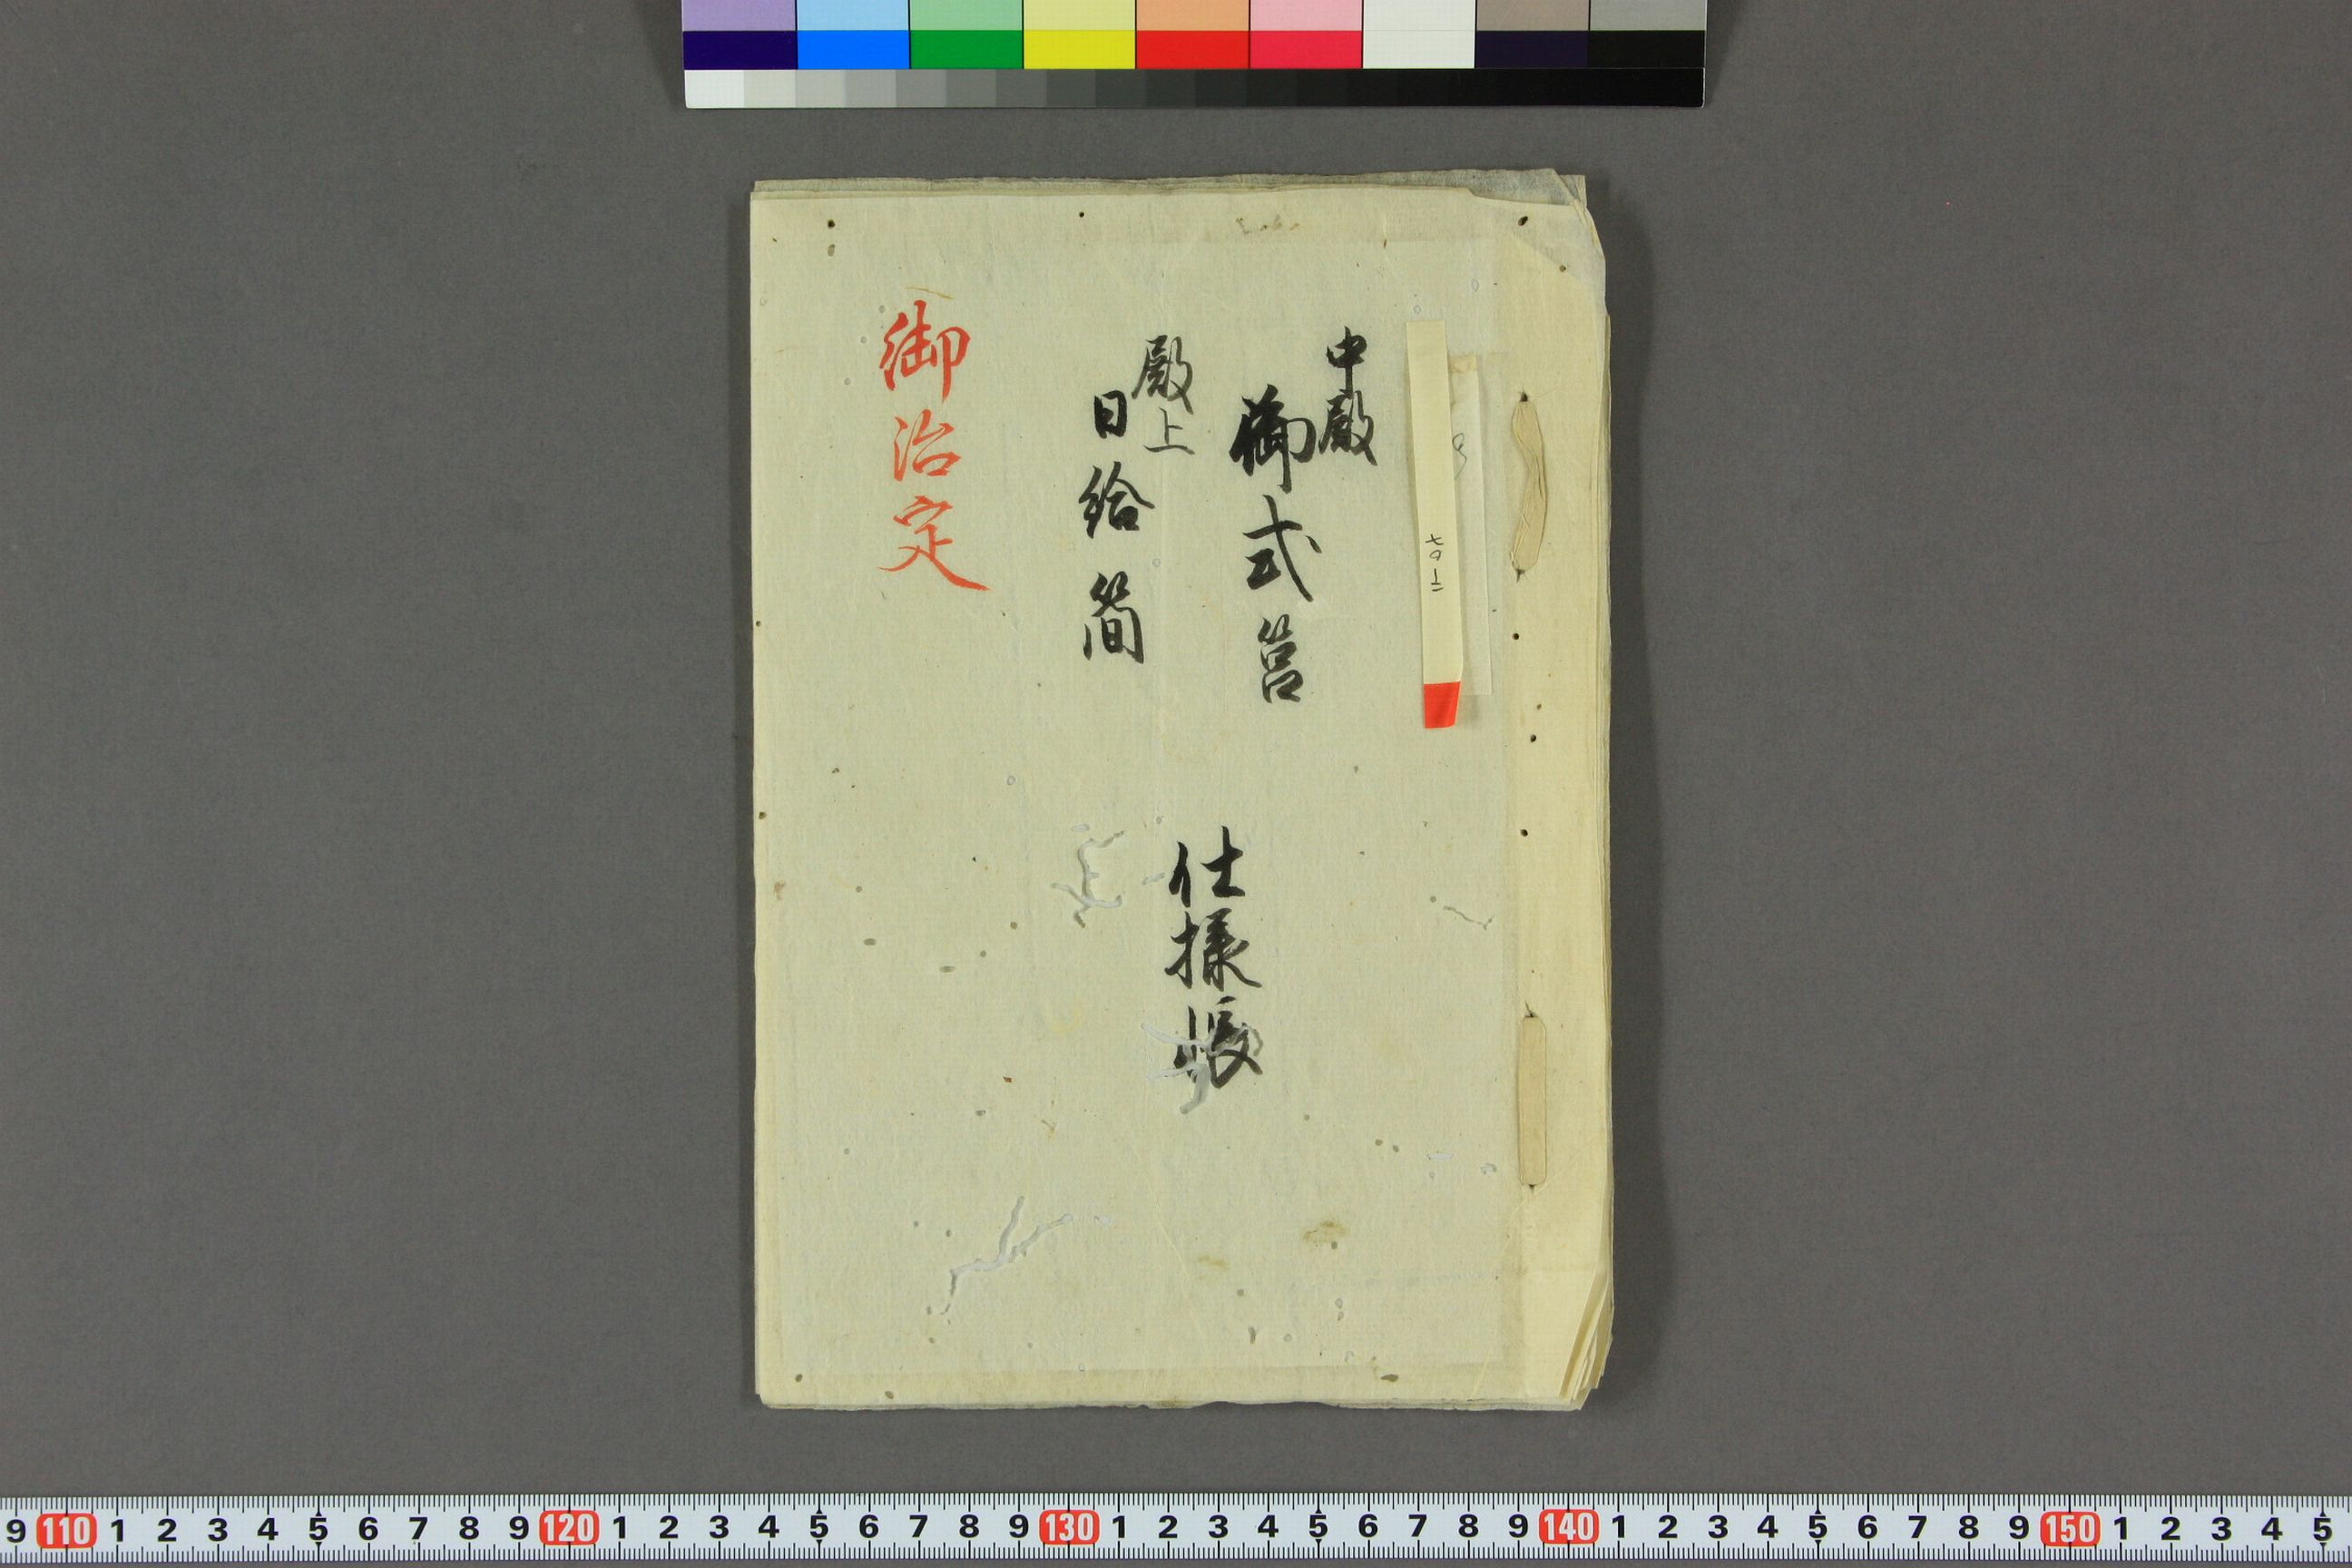 中殿
御式筥
殿上
日給簡
仕様帳
御治定
9 110 1 2 3 4 5 6 7 8 9 120 1 2 3 4 5 6 7 8 9 130 1 2 3 4 5 6 7 8 9 140 1 2 3 4 5 6 7 8 9 150 1 2 3 4 5